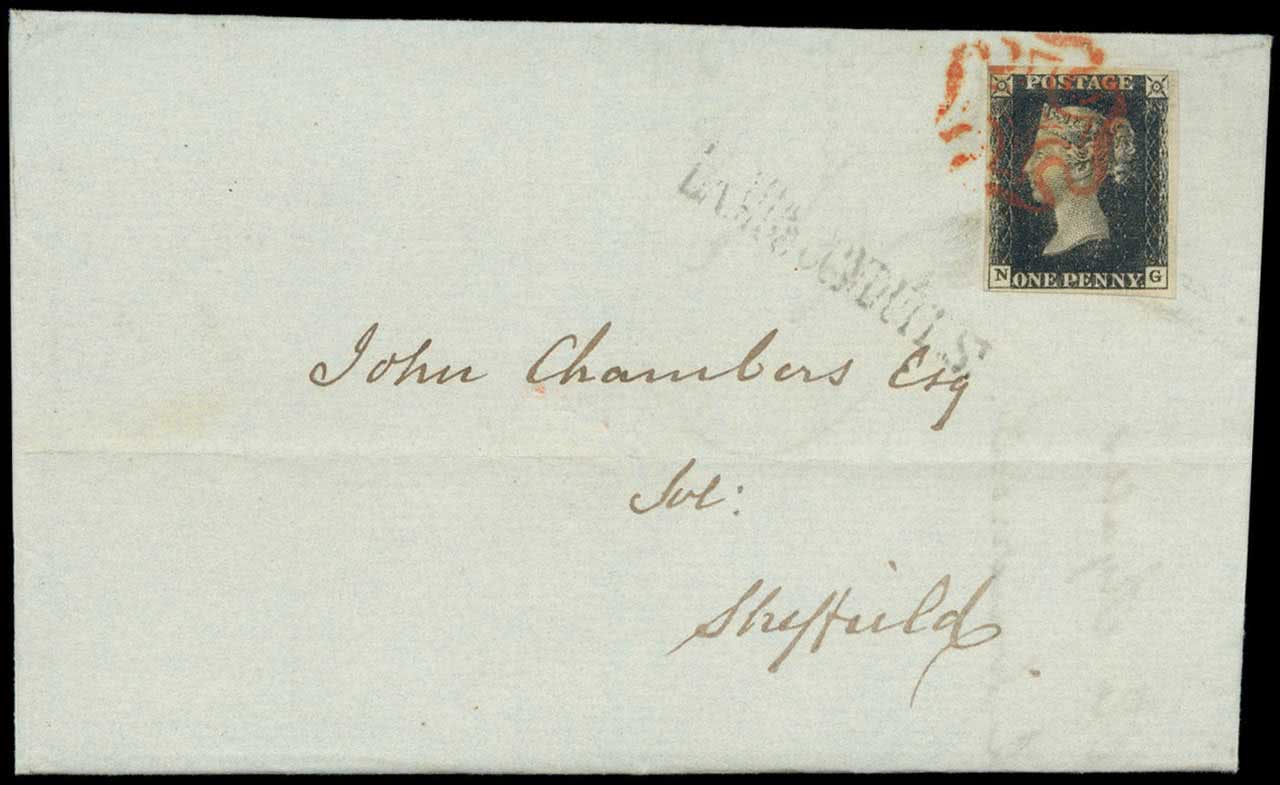 POSTAGE
N ONE PENNY. G
John Chambers Esq
Sol:
Sheffield